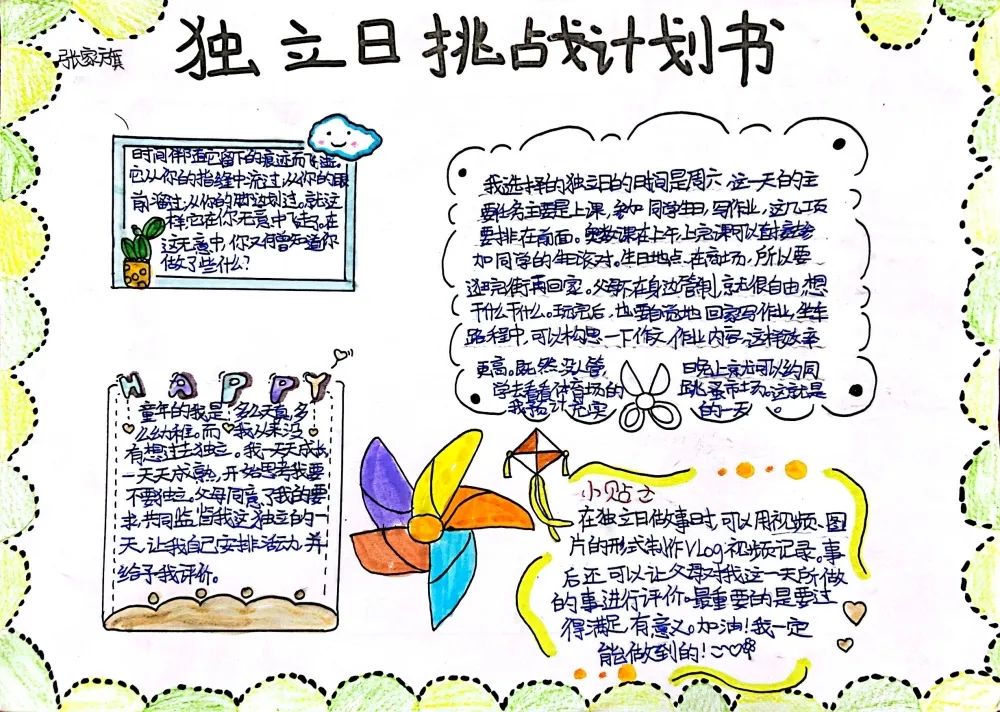 独立日挑战计划书
张家旗
时间伴随它留下的痕迹而飞逝。
它从你的指缝中流过,从你的眼
前溜过,从你的脚边划过。就这
样它在你无意中飞走。在
这无意中,你又何曾知道你
做了些什么?
我选择的独立日的时间是周六,这一天的主
要任务主要是上课,参加同学生日,写作业,这几项
要排在前面。奥数课在上午,上完课可以直接参
加同学的生日派对。生日地点在商场,所以要
逛完街再回家。父母不在身边管制,就很自由,想
干什么干什么。玩完后,也要自觉地回家写作业,坐车
路程中,可以构思一下作文,作业内容,这样效率
更高。既然没人管,
日晚上就可以约同
学去看看体育场的
跳蚤市场。这就是
我预计充实
的一天。
HAPPY
童年的我是多么天真,多
么幼稚。而我从来没
有想过去独立。我一天天成长,
一天天成熟,开始思考我要
不要独立。父母同意了我的要
求,共同监督我这独立的一
天,让我自己安排活动,并
给予我评价。
小贴士
在独立日做事时,可以用视频、图
片的形式制作Vlog视频记录。事
后还可以让父母对我这一天所做
的事进行评价。最重要的是要过
得满足,有意义。加油!我一定
能做到的!